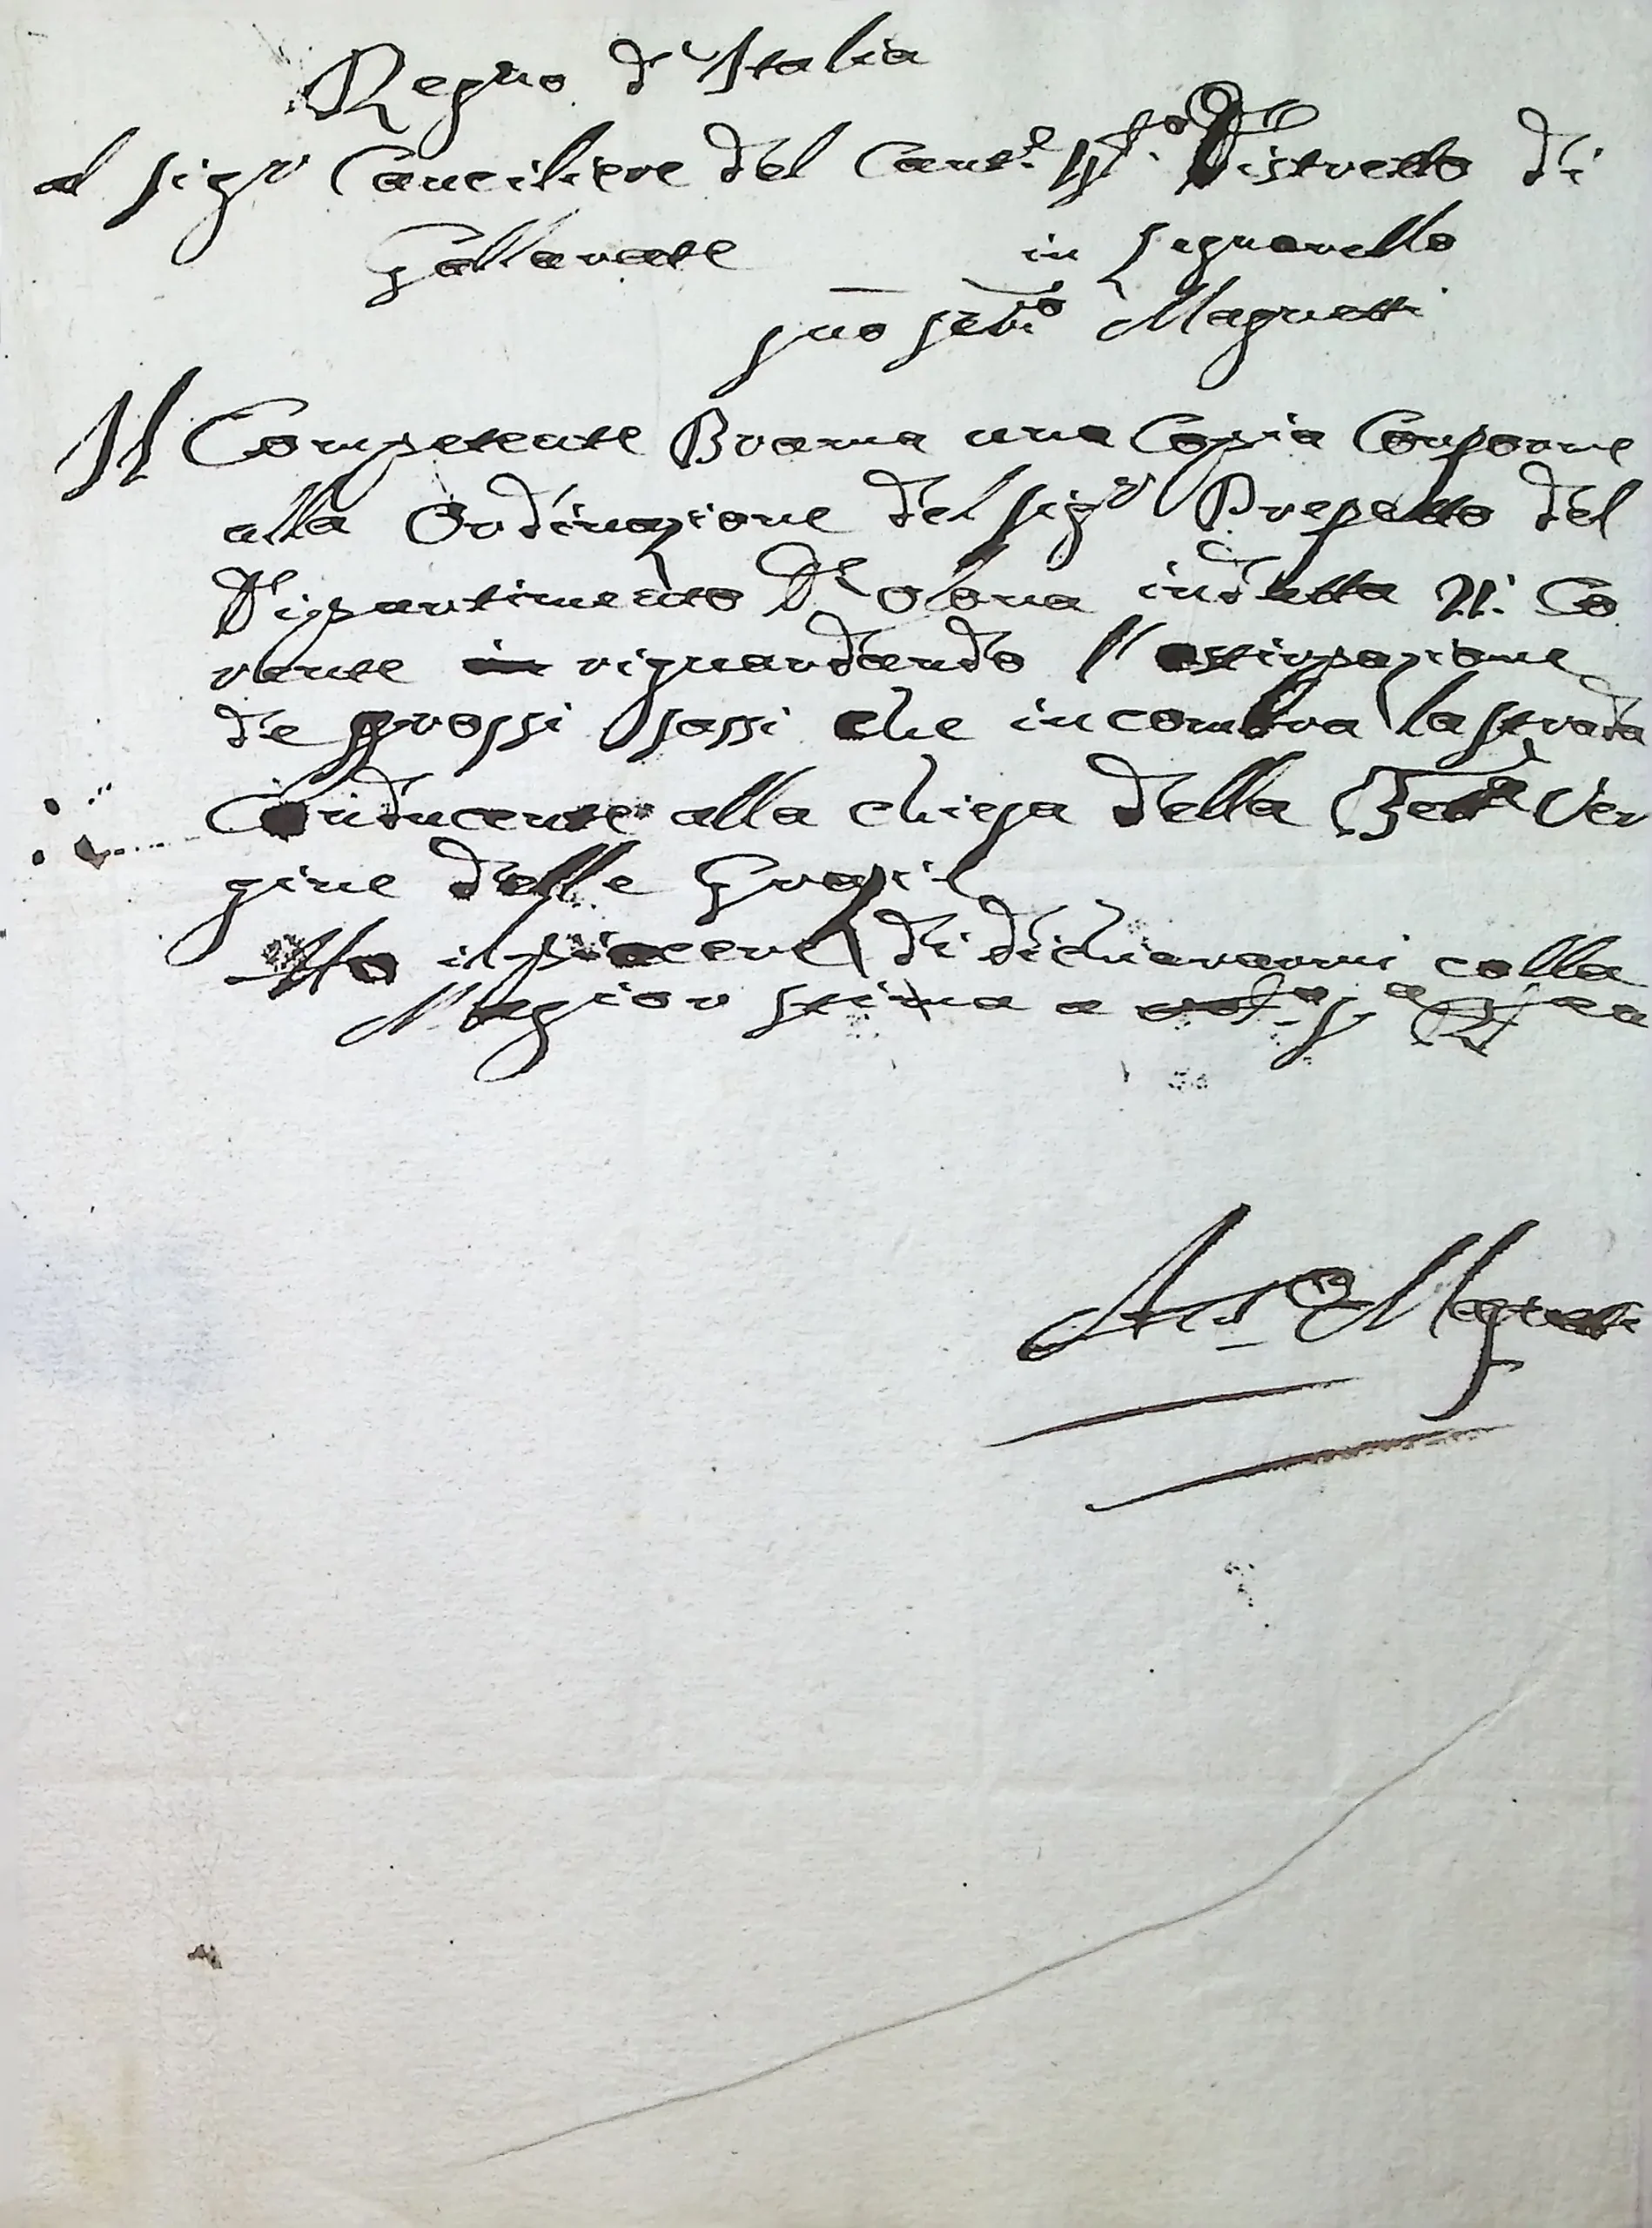 Regno d'Italia
al Sigr Canciliere del Cant.e Distretto di
Gallarate in Legnarello
suo Servo Magnetti
Il Competente Brama una Copia Conforme
alla Ordinazione del Sigr Prefetto del
Dipartimento d'Olona indetta Co
rente riguardando l'estirpazione
de grossi sassi che incombra la strada
Conducente alla chiesa della Beata Ver
gine delle Grazie
Ho il piacere di dichiararmi colla
Magior stima a
Anto Magnetti